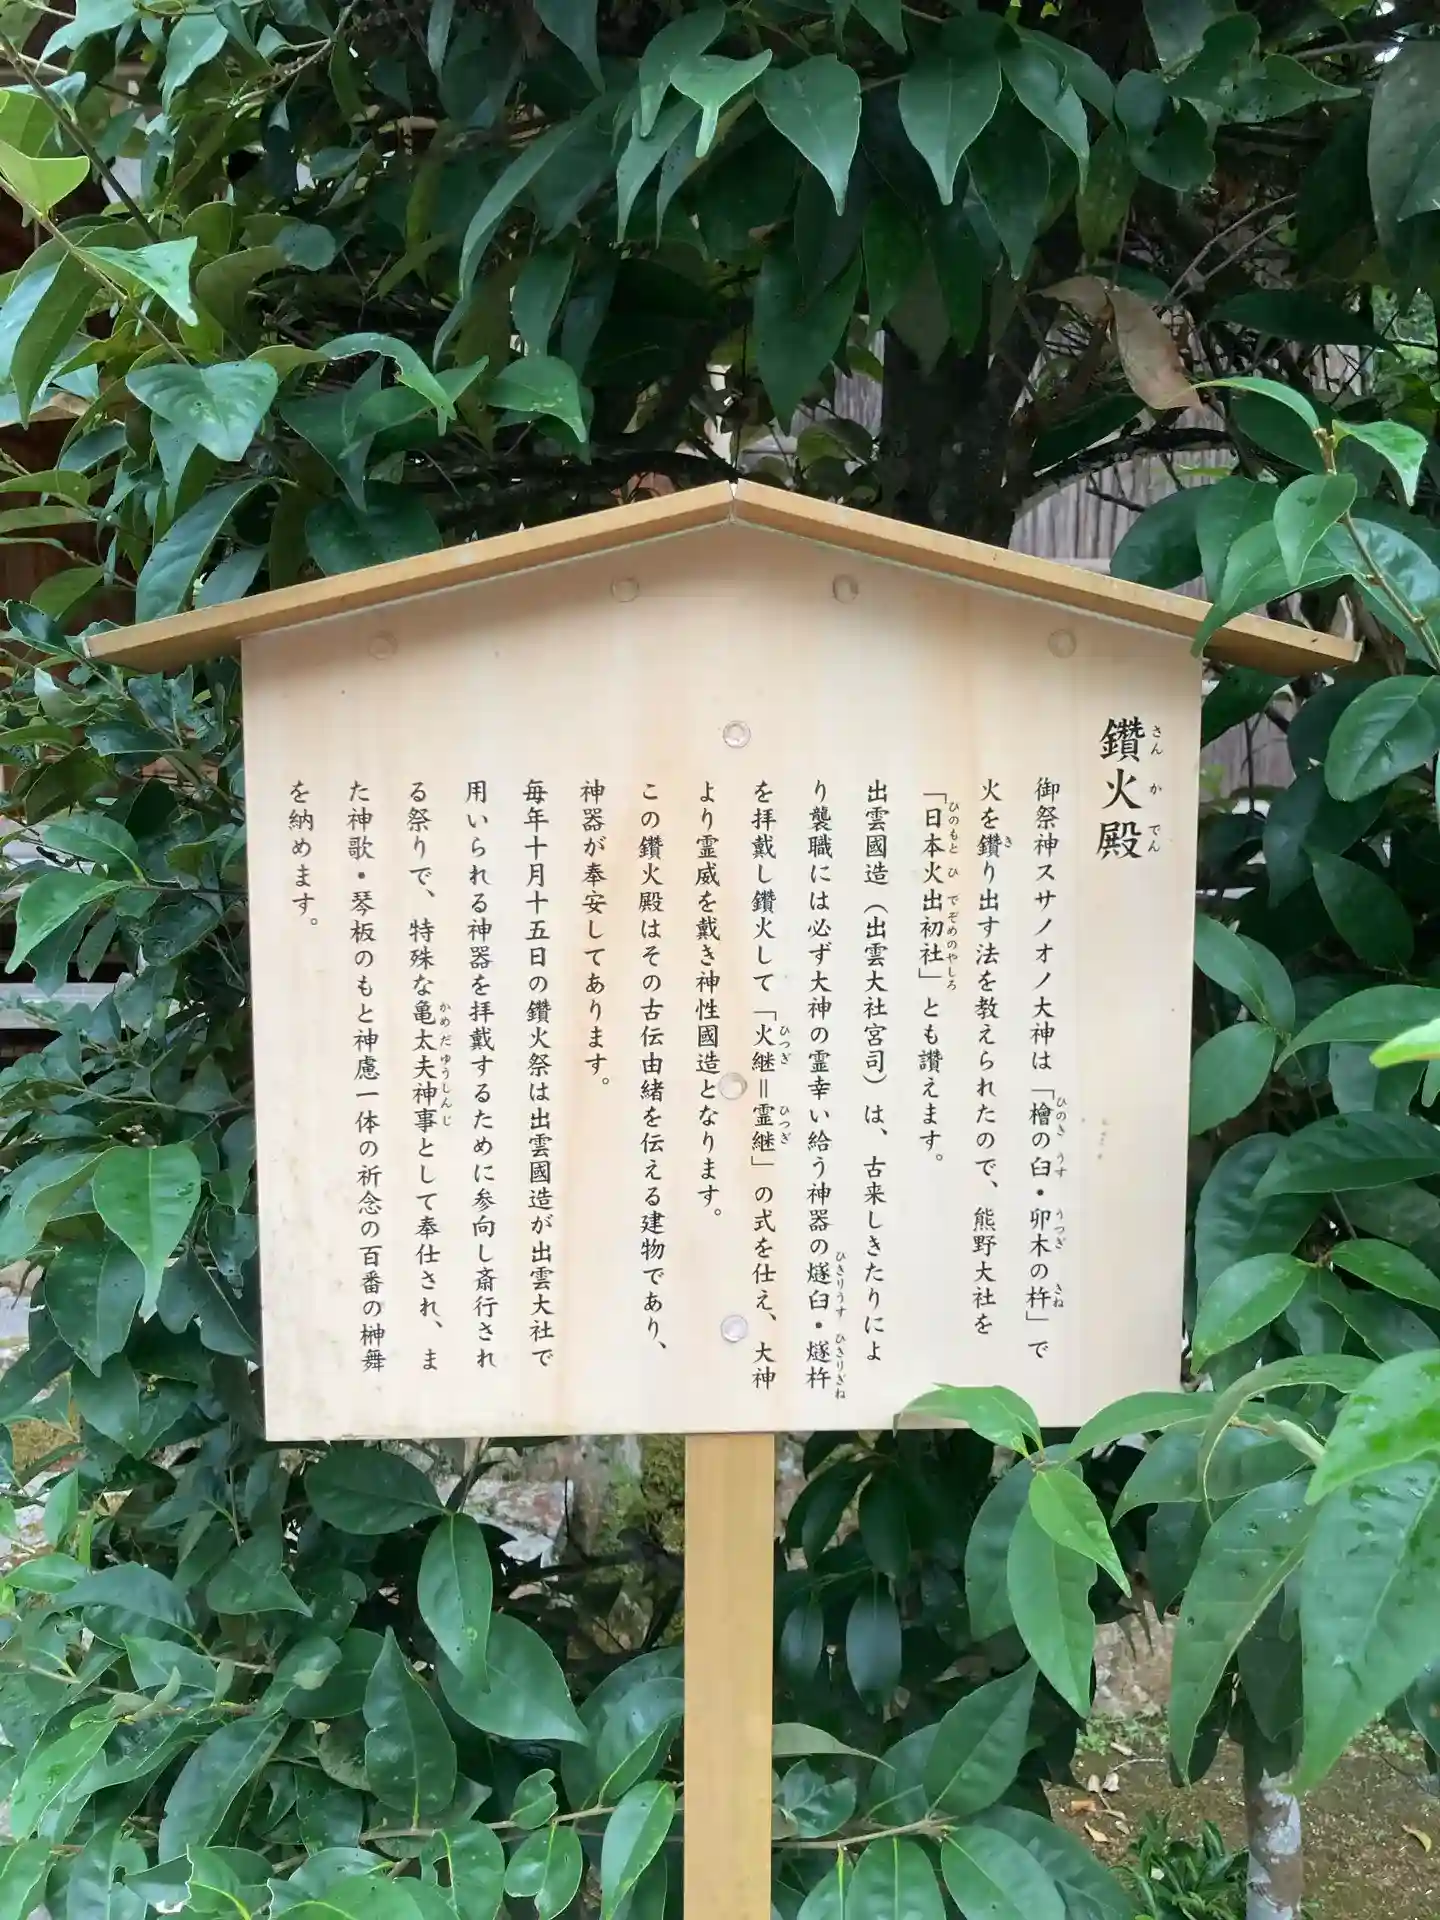 鑽火殿
御祭神スサノオノ大神は「檜の臼・卯木の杵」で
火を鑽り出す法を教えられたので、熊野大社を
「日本火出初社」とも讃えます。
出雲國造（出雲大社宮司）は、古来しきたりによ
り襲職には必ず大神の霊幸い給う神器の燧臼・燧杵
を拝戴し鑽火して「火継＝霊継」の式を仕え、大神
より霊威を戴き神性國造となります。
この鑽火殿はその古伝由緒を伝える建物であり、
神器が奉安してあります。
毎年十月十五日の鑽火祭は出雲國造が出雲大社で
用いられる神器を拝戴するために参向し斎行され
る祭りで、特殊な亀太夫神事として奉仕され、ま
た神歌・琴板のもと神慮一体の祈念の百番の榊舞
を納めます。